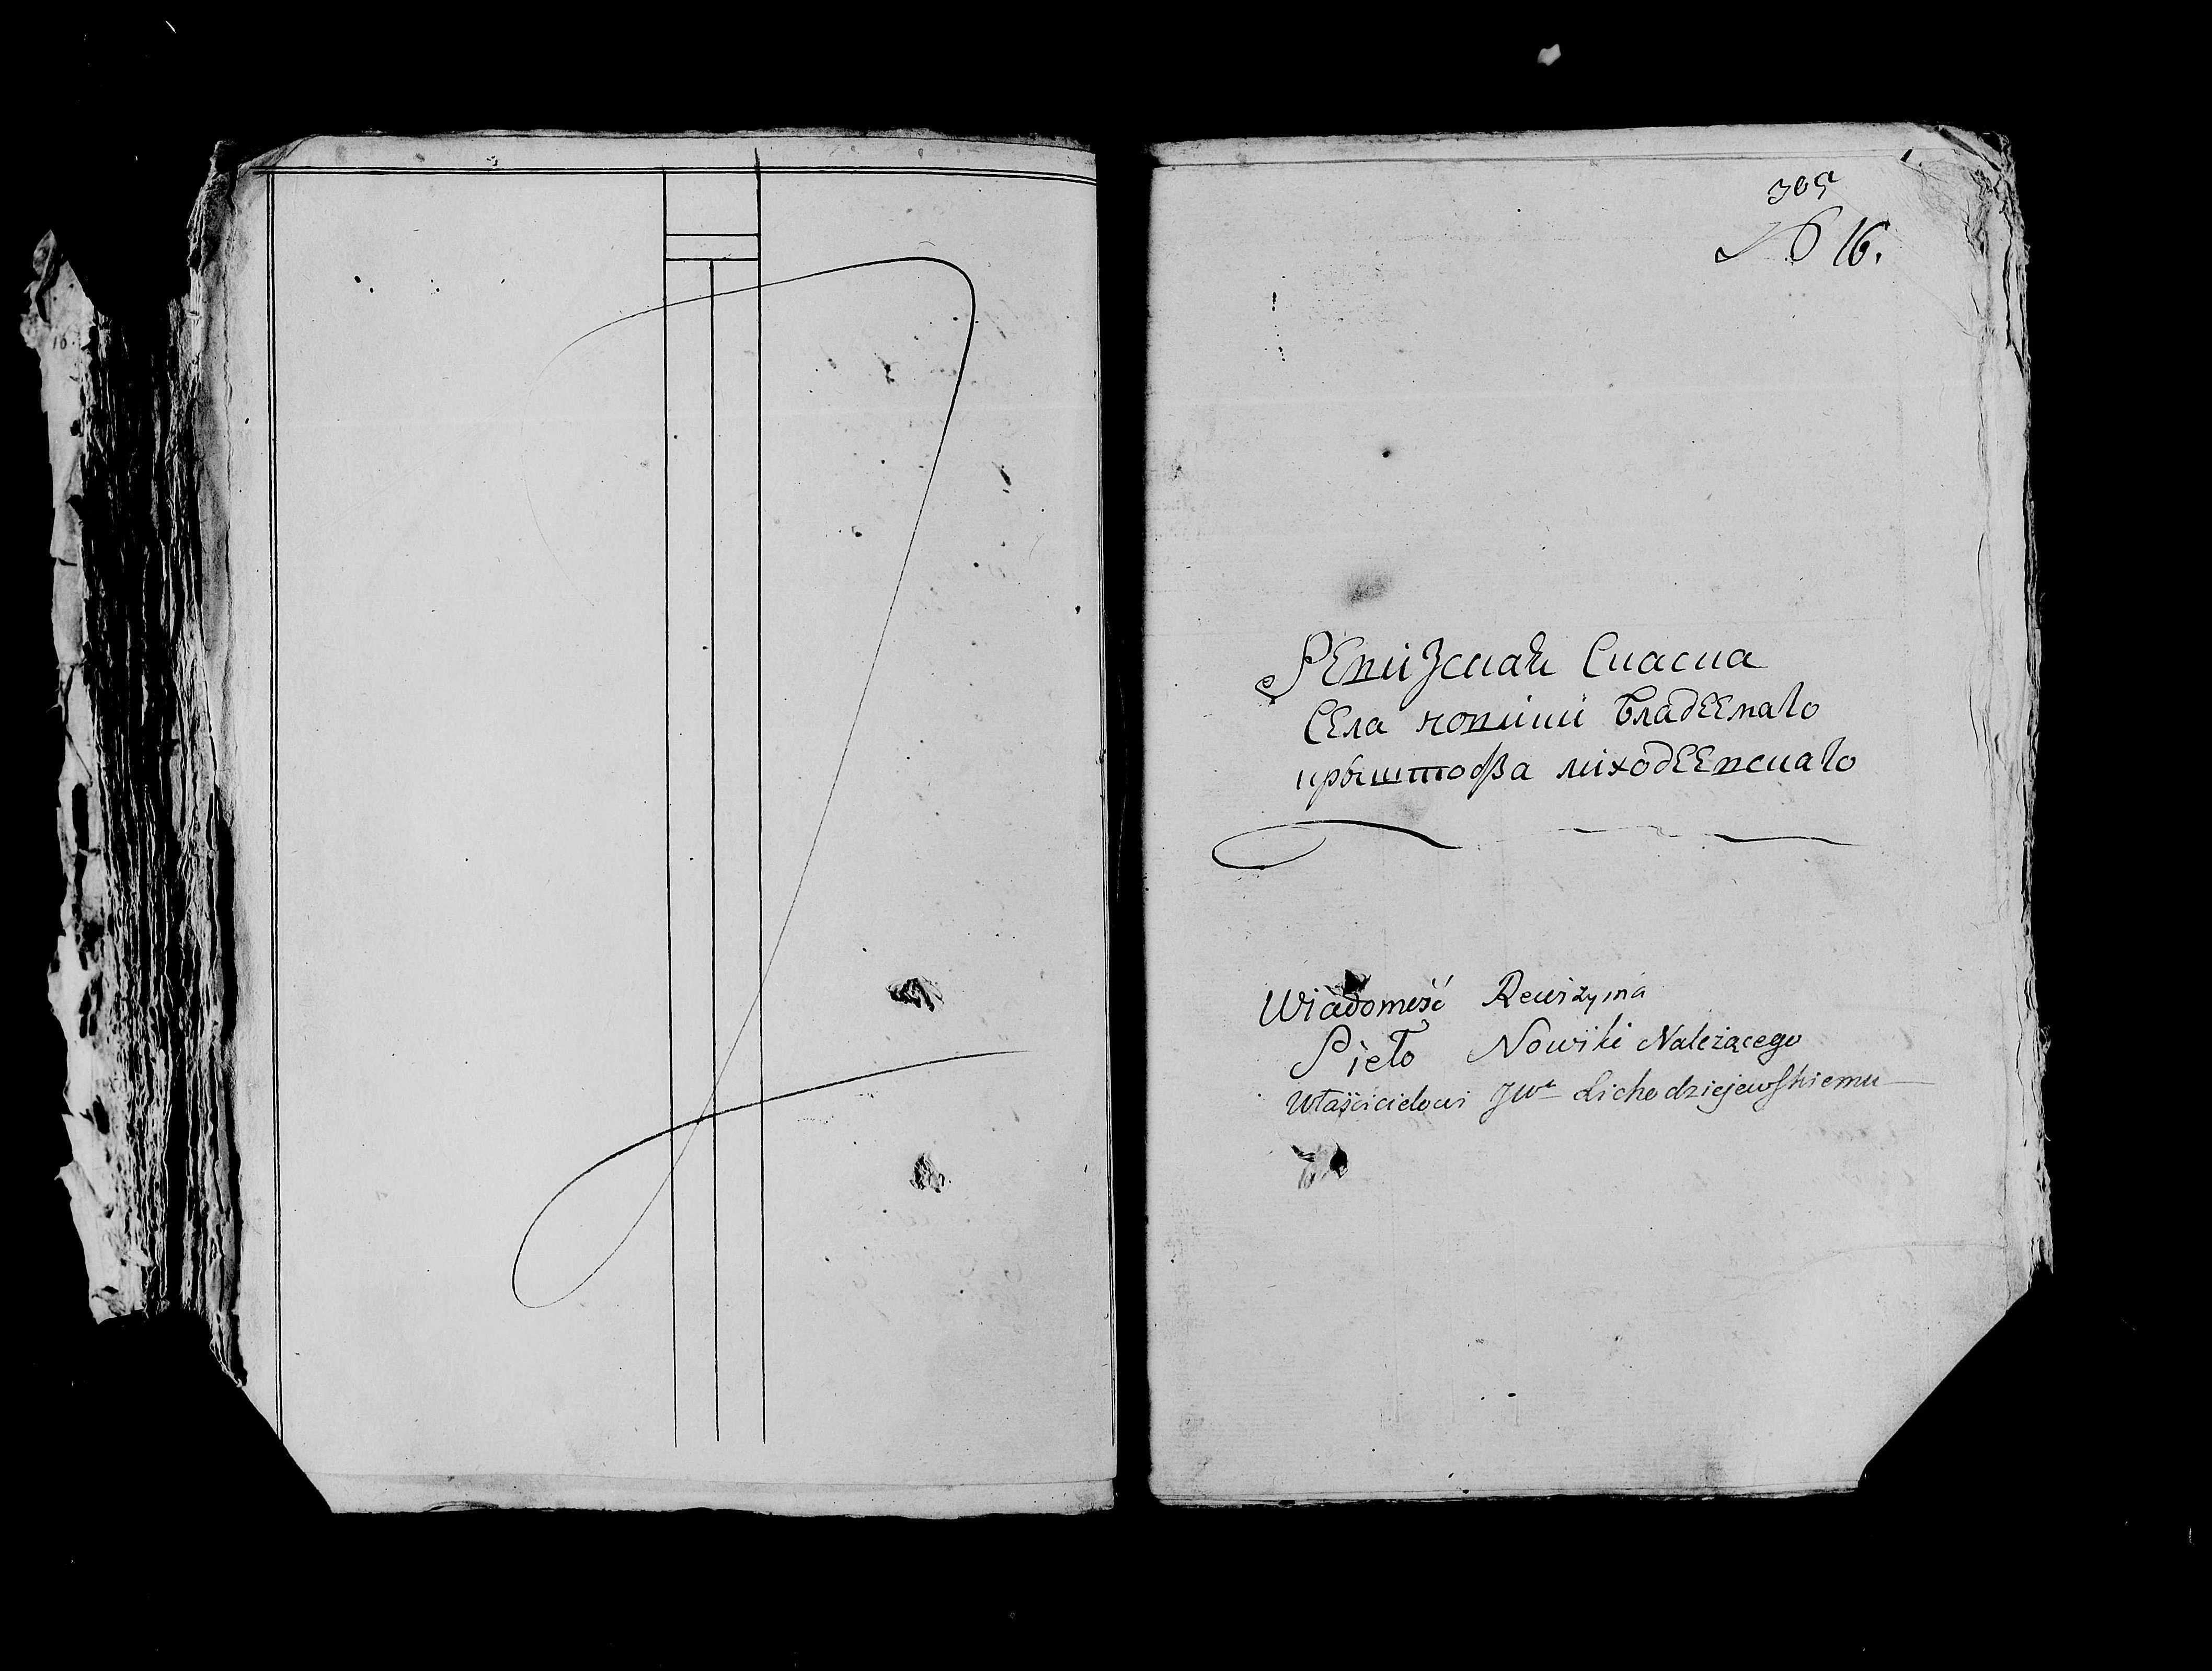 16.
305
№ 16.
Ревизская Сказка
Села новики владеемаго
крыштофа лиходеевскаго
Wiadomość Rewizyina
Sieło Nowiki Należącego
Właścicielowi JWu Lichodziejewskiemu